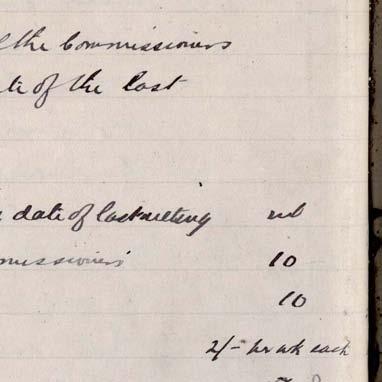 the Commissioners
of the last
date of last meeting nil
missioners 10
10
2/- per wk each